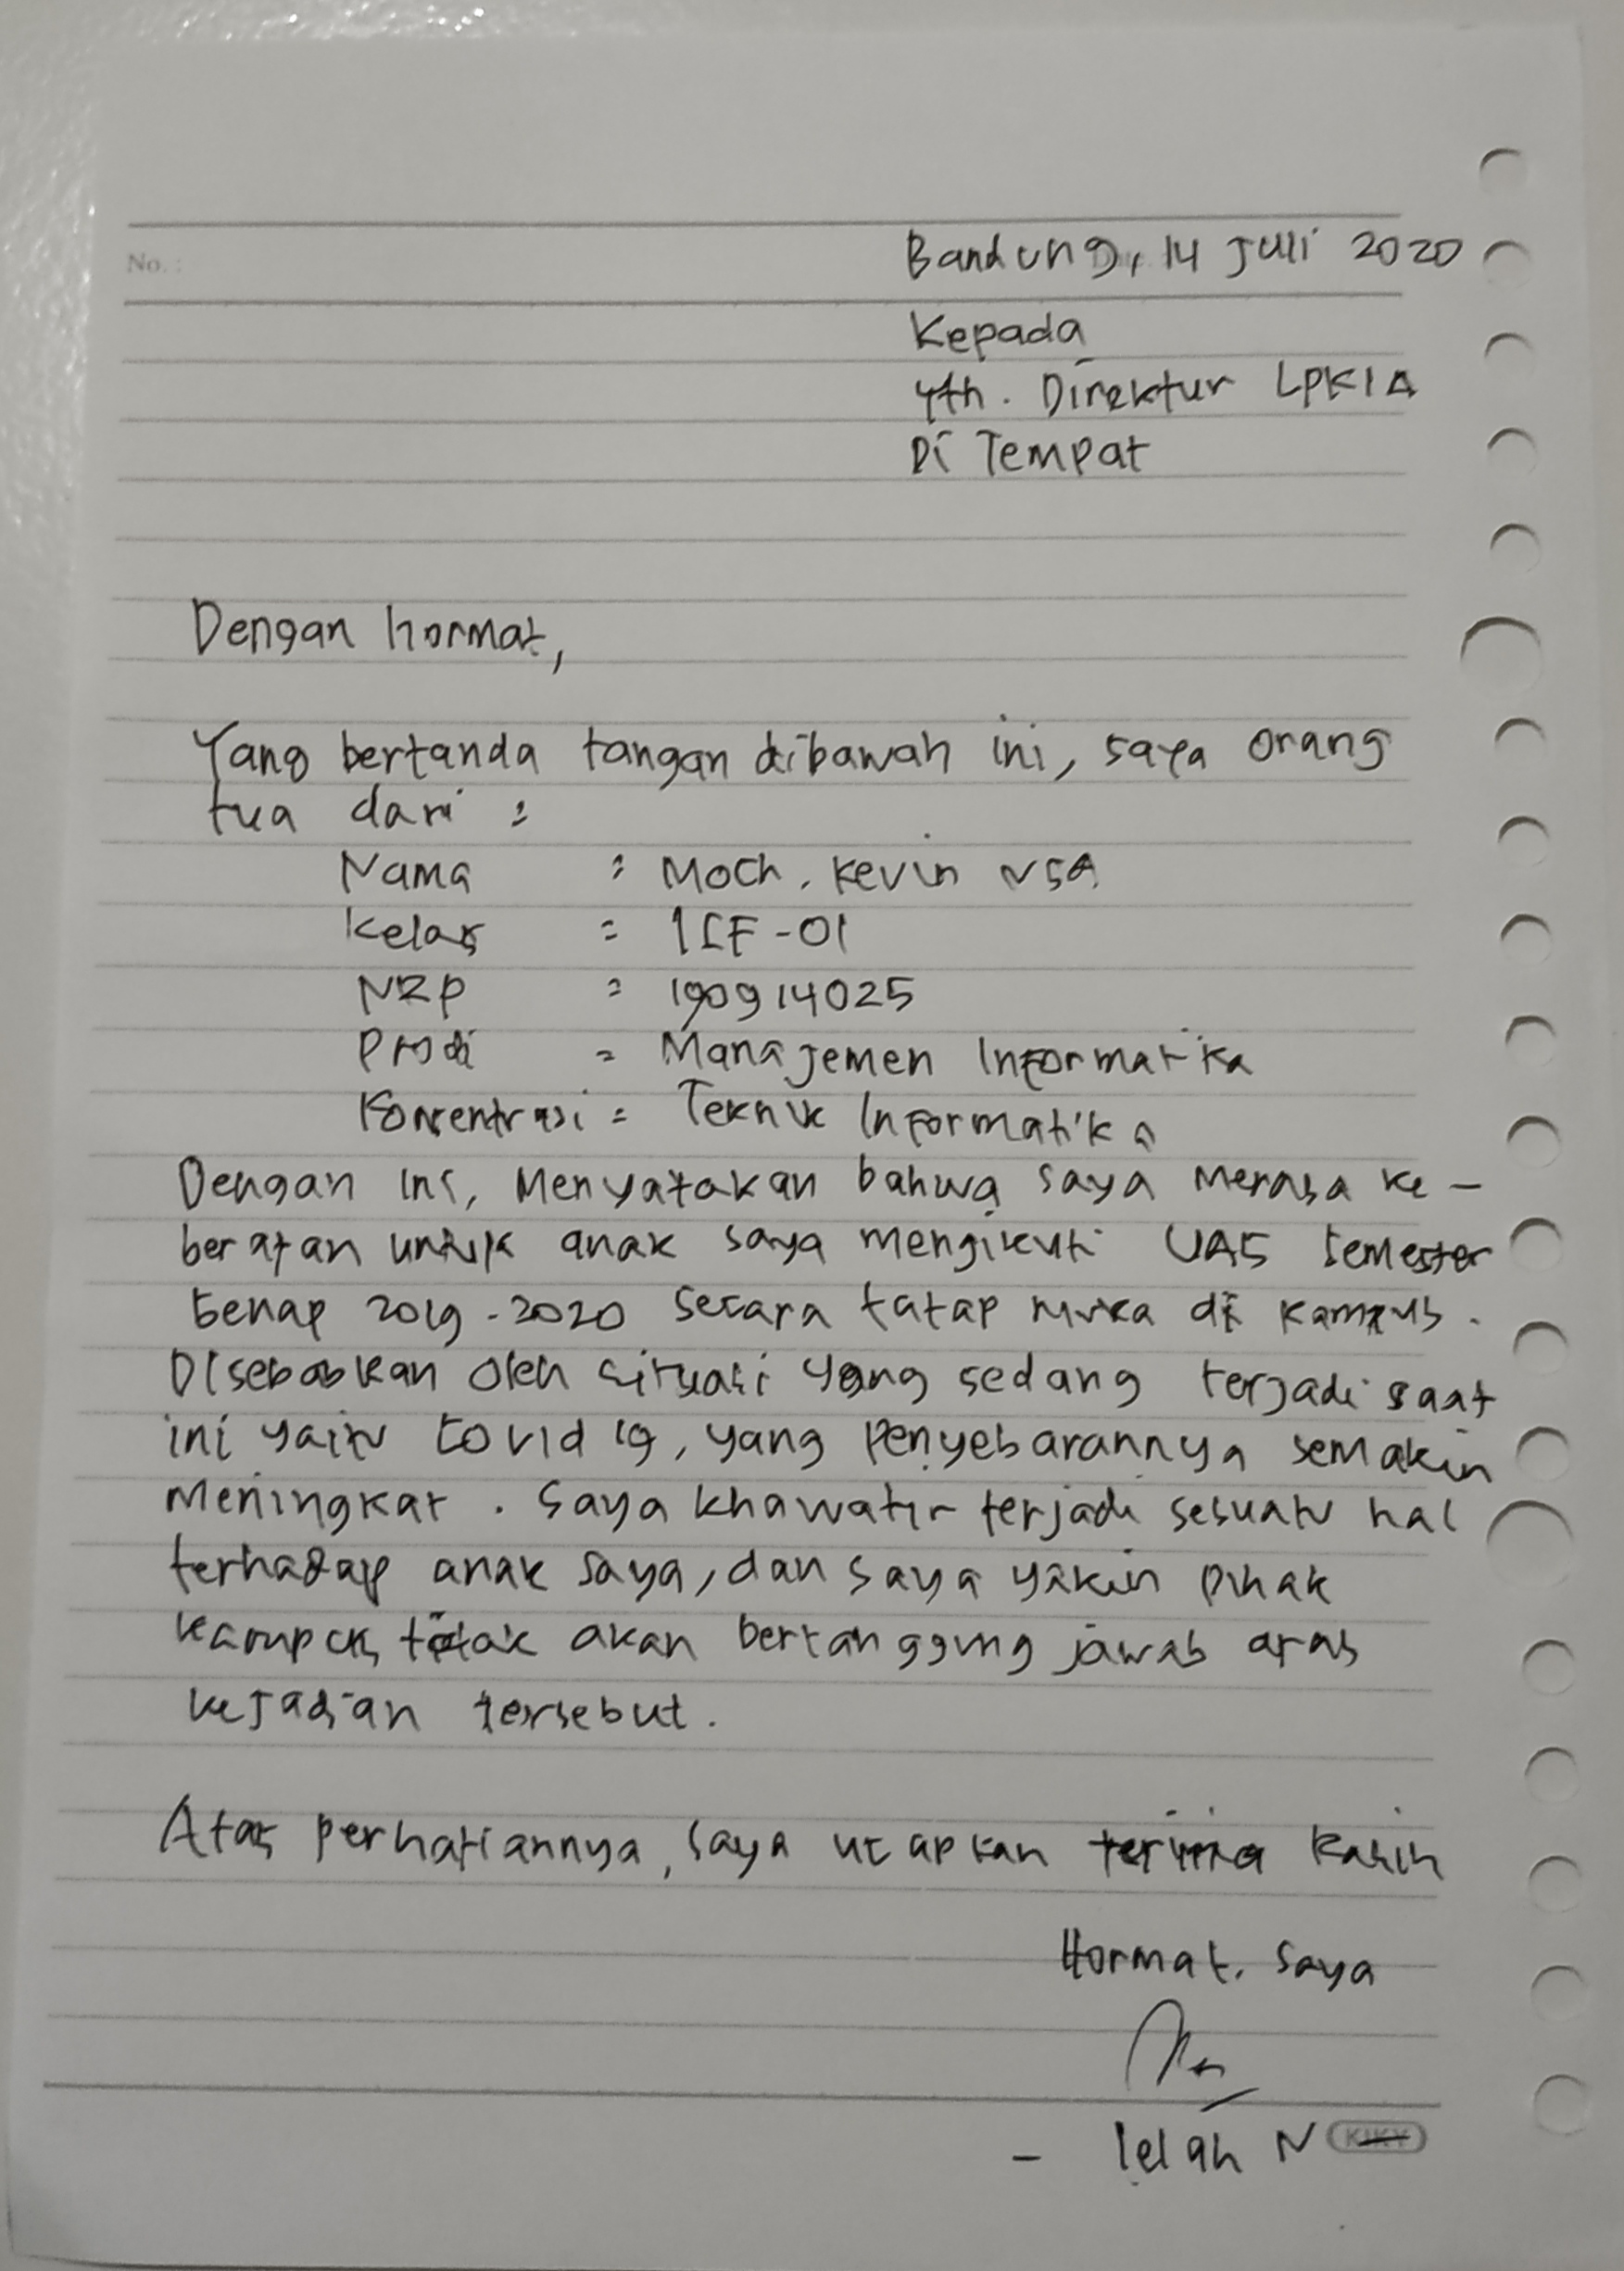 No. :
Bandung, 14 Juli 2020
Kepada
Yth. Direktur LPKIA
Di Tempat
Dengan hormat,
Yang bertanda tangan dibawah ini, saya orang
tua dari :
Nama : Moch. Kevin NSA
Kelas : 1IF-01
NRP : 190914025
Prodi : Manajemen Informatika
Konsentrasi : Teknik Informatika
Dengan ini, Menyatakan bahwa saya merasa ke-
beratan untuk anak saya mengikuti UAS Semester
Genap 2019-2020 Secara tatap muka di kampus.
Disebabkan oleh situasi yang sedang terjadi saat
ini yaitu Covid 19, yang Penyebarannya semakin
Meningkat. Saya khawatir terjadi sesuatu hal
terhadap anak saya, dan saya yakin pihak
kampus tidak akan bertanggung jawab atas
kejadian tersebut.
Atas perhatiannya, saya ucapkan terima kasih
Hormat, Saya
- N KIKY